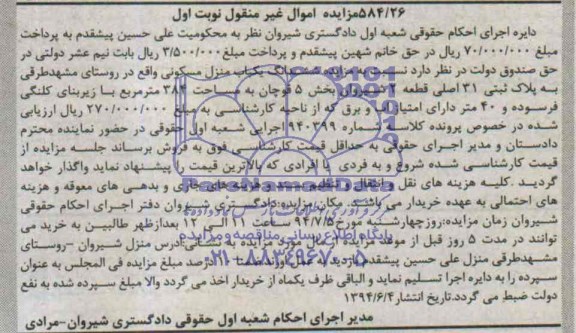 ۵۸۴/۲۶مزایده اموال غیر منقول نوبت اول
دایره اجرای احکام حقوقی شعبه اول دادگستری شیروان نظر به محکومیت علی حسین پیشقدم به پرداخت
مبلغ ۷۰/۰۰۰/۰۰۰ ریال در حق خانم شهین پیشقدم و پرداخت مبلغ ۳/۵۰۰/۰۰۰ ریال بابت نیم عشر دولتی در
حق صندوق دولت در نظر دارد نسبت به مزایده ششدانگ یکباب منزل مسکونی واقع در روستای مشهدطرقی
به پلاک ثبتی ۳۱ اصلی قطعه ۲ شیروان بخش ۵ قوچان به مساحت ۳۸۴ مترمربع با زیربنای کلنگی
فرسوده و ۴۰ متر دارای امتیاز آب و برق که از ناحیه کارشناسی به مبلغ ۲۷۰/۰۰۰/۰۰۰ ریال ارزیابی
شده در خصوص پرونده کلاسه شماره ۹۴۰۳۹۹ اجرایی شعبه اول حقوقی در حضور نماینده محترم
دادستان و مدیر اجرای حقوقی به حداقل قیمت کارشناسی فوق به فروش برساند جلسه مزایده از
قیمت کارشناسی شده شروع و به فردی یا افرادی که بالاترین قیمت را پیشنهاد نماید واگذار خواهد
گردید .کلیه هزینه های نقل و انتقال و تنظیم سند و هزینه های جاری و بدهی های معوقه و هزینه
های احتمالی به عهده خریدار می باشد. مکان مزایده:دادگستری شیروان دفتر اجرای احکام حقوقی
شیروان زمان مزایده:روزچهارشنبه مورخ ۹۴/۷/۵ ساعت ۱۱ الی ۱۲ بعدازظهر طالبین به خرید می
توانند در مدت ۵ روز قبل از موعد مزایده از مال مورد مزایده به نشانی:آدرس منزل شیروان –روستای
مشهدطرقی منزل علی حسین پیشقدم بازدید به عمل آورند ضمنا ۱۰ درصد مبلغ مزایده فی المجلس به عنوان
سپرده را به دایره اجرا تسلیم نماید و الباقی ظرف یکماه از خریدار اخذ می گردد والا مبلغ سپرده شده به نفع
دولت ضبط می گردد.تاریخ انتشار ۱۳۹۴/۶/۴
مدیر اجرای احکام شعبه اول حقوقی دادگستری شیروان-مرادی
ParsNamadData
پایگاه اطلاع رسانی مناقصه و مزایده
۰۲۱-۸۸۳۴۹۶۷۰-۵